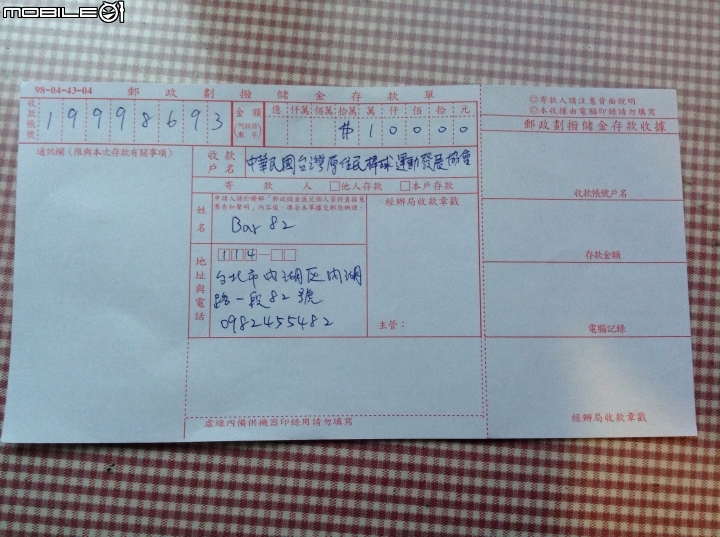 mobile01
98-04-43-04
郵政劃撥儲金存款單
收款帳號
1 9 9 9 8 6 9 3
金額
億 仟萬 佰萬 拾萬 萬 仟 佰 拾 元
$ 1 0 0 0 0
◎寄款人請注意背面說明
◎本收據由電腦印錄請勿填寫
郵政劃撥儲金存款收據
通訊欄（限與本次存款有關事項）
收款戶名
中華民國台灣原住民棒球運動發展協會
寄款人 □他人存款 □本戶存款
姓名
Bar 82
經辦局收款章戳
收款帳號戶名
地址與電話
114-□□
台北市內湖区內湖
路一段82號
0982455482
主管：
存款金額
電腦記錄
經辦局收款章戳
虛線內備供機器印錄用請勿填寫